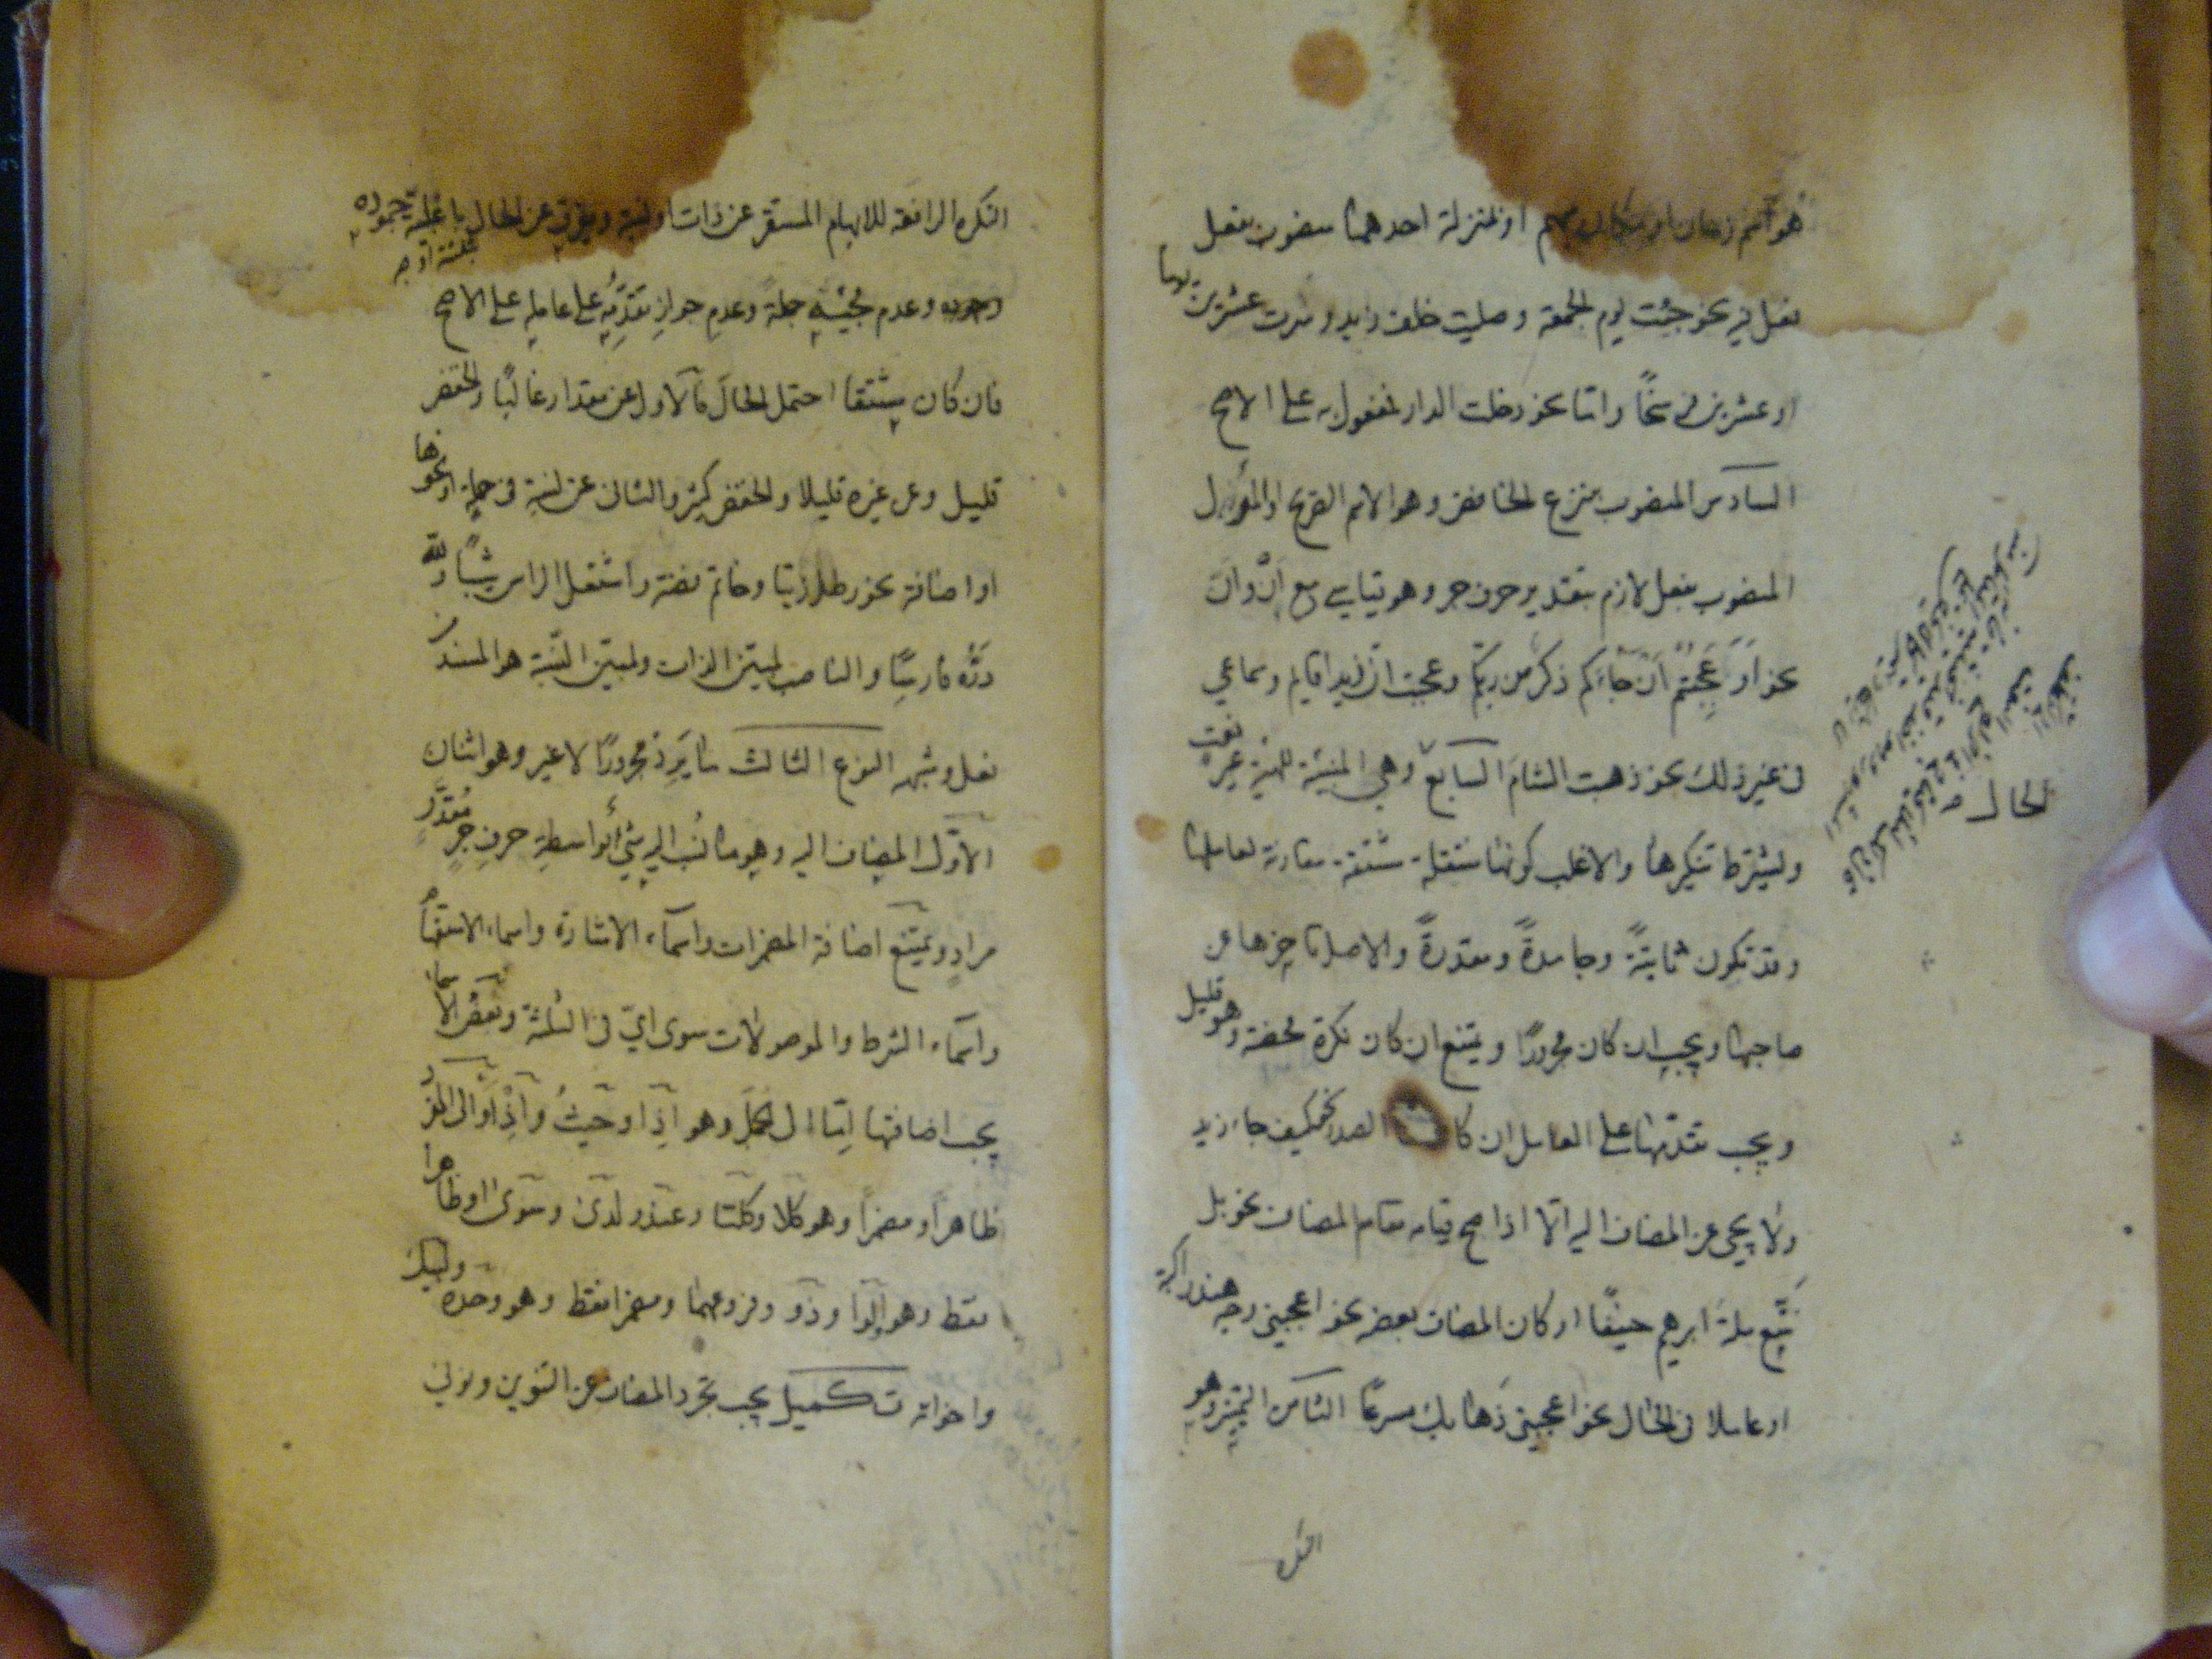 هو اسم زمان او مكان مبهم او بمنزلة احدهما منصوب بفعل
فعل فيه نحو جئت يوم الجمعة وصليت خلف زيد وسرت عشرين يوما
او عشرين فرسخًا واما نحو دخلت الدار فمفعول به على الاصح
السادس المنصوب بنزع الخافض وهو الاسم الصريح او المؤول
المنصوب بفعل لازم بتقدير حرف جر وهو قياسي مع اَنْ واَنّ
نحو اَوَعَجِبْتُمْ اَنْ جَاءَكم ذكر من ربكم وعجبت ان زيدا قايم وسماعي
في غير ذلك نحو ذهبت الشامَ السابع وهي المبينة للهيئة غير نعت
ويشترط تنكيرها والاغلب كونها منتقلة مشتقة مقارنة لعاملها
وقد تكون ثابتةً وجامدةً ومقدرةً والاصل تاخيرها عن
صاحبها ويجب ان كان مجرورًا ويمتنع ان كان نكرة محضة وهو قليل
ويجب تقدمها على العامل ان كا الصدر نحو كيف جاء زيد
ولا يجئ عن المضاف اليه الا اذا صح قيامه مقام المضاف نحو بل
نتّبع ملةَ ابرهيم حنيفًا او كان المضاف بعضه نحو اعجبني وجه هند راكبة
او عاملا في الحال نحو اعجبني ذهابك مسرعًا الثامن التميز وهو
النكره
الحال
النكره الرافعة للابهام المستقر عن ذات او نسبة ويفترق عن الحال باغلبية جموده
وعدم مجيئه جملة وعدم جواز تقدّمه على عامله على الاصح
فان كان مشتقا احتمل الحالَ فالاول عن مقدار غالبًا والخفض
قليل وعن غيره قليلا والخفض كثير والثاني عن نسبة في جملة او نحوها
او اضافة نحو رطل زيتا وخاتم فضة واشتعل الراس شيبًا ولله
دَرُّه فارسًا والناصب لمبيّن الذات ولمبيّن النسبة هو المسند من
فعل وشبهه النوع الثالث ما يَرِدُ مجرورًا لا غير وهو اثنان
الاوّل المضاف اليه وهو ما نُسب اليه شئ بواسطة حرف جر مُقدَّر
مرادٍ ويمتنع اضافة المضمرات واسماء الاشارة واسماء الاستفهام
واسماء الشرط والموصولات سوى ايّ في الثلثة وبعض الاسماء
يجب اضافتها امّا الى الجمل وهو اِذا وحيثُ واِذْ اَوْ الى المفرد
ظاهرًا ومضمرًا وهو كلا وكلتا وعند ولدى وسوى او ظاهرا
فقط وهو اُلوا وذو وفروعهما ومضمرا فقط وهو وحده ولبيك
واخواته تكميل يجب تجرد المضاف عن التنوين ونوني